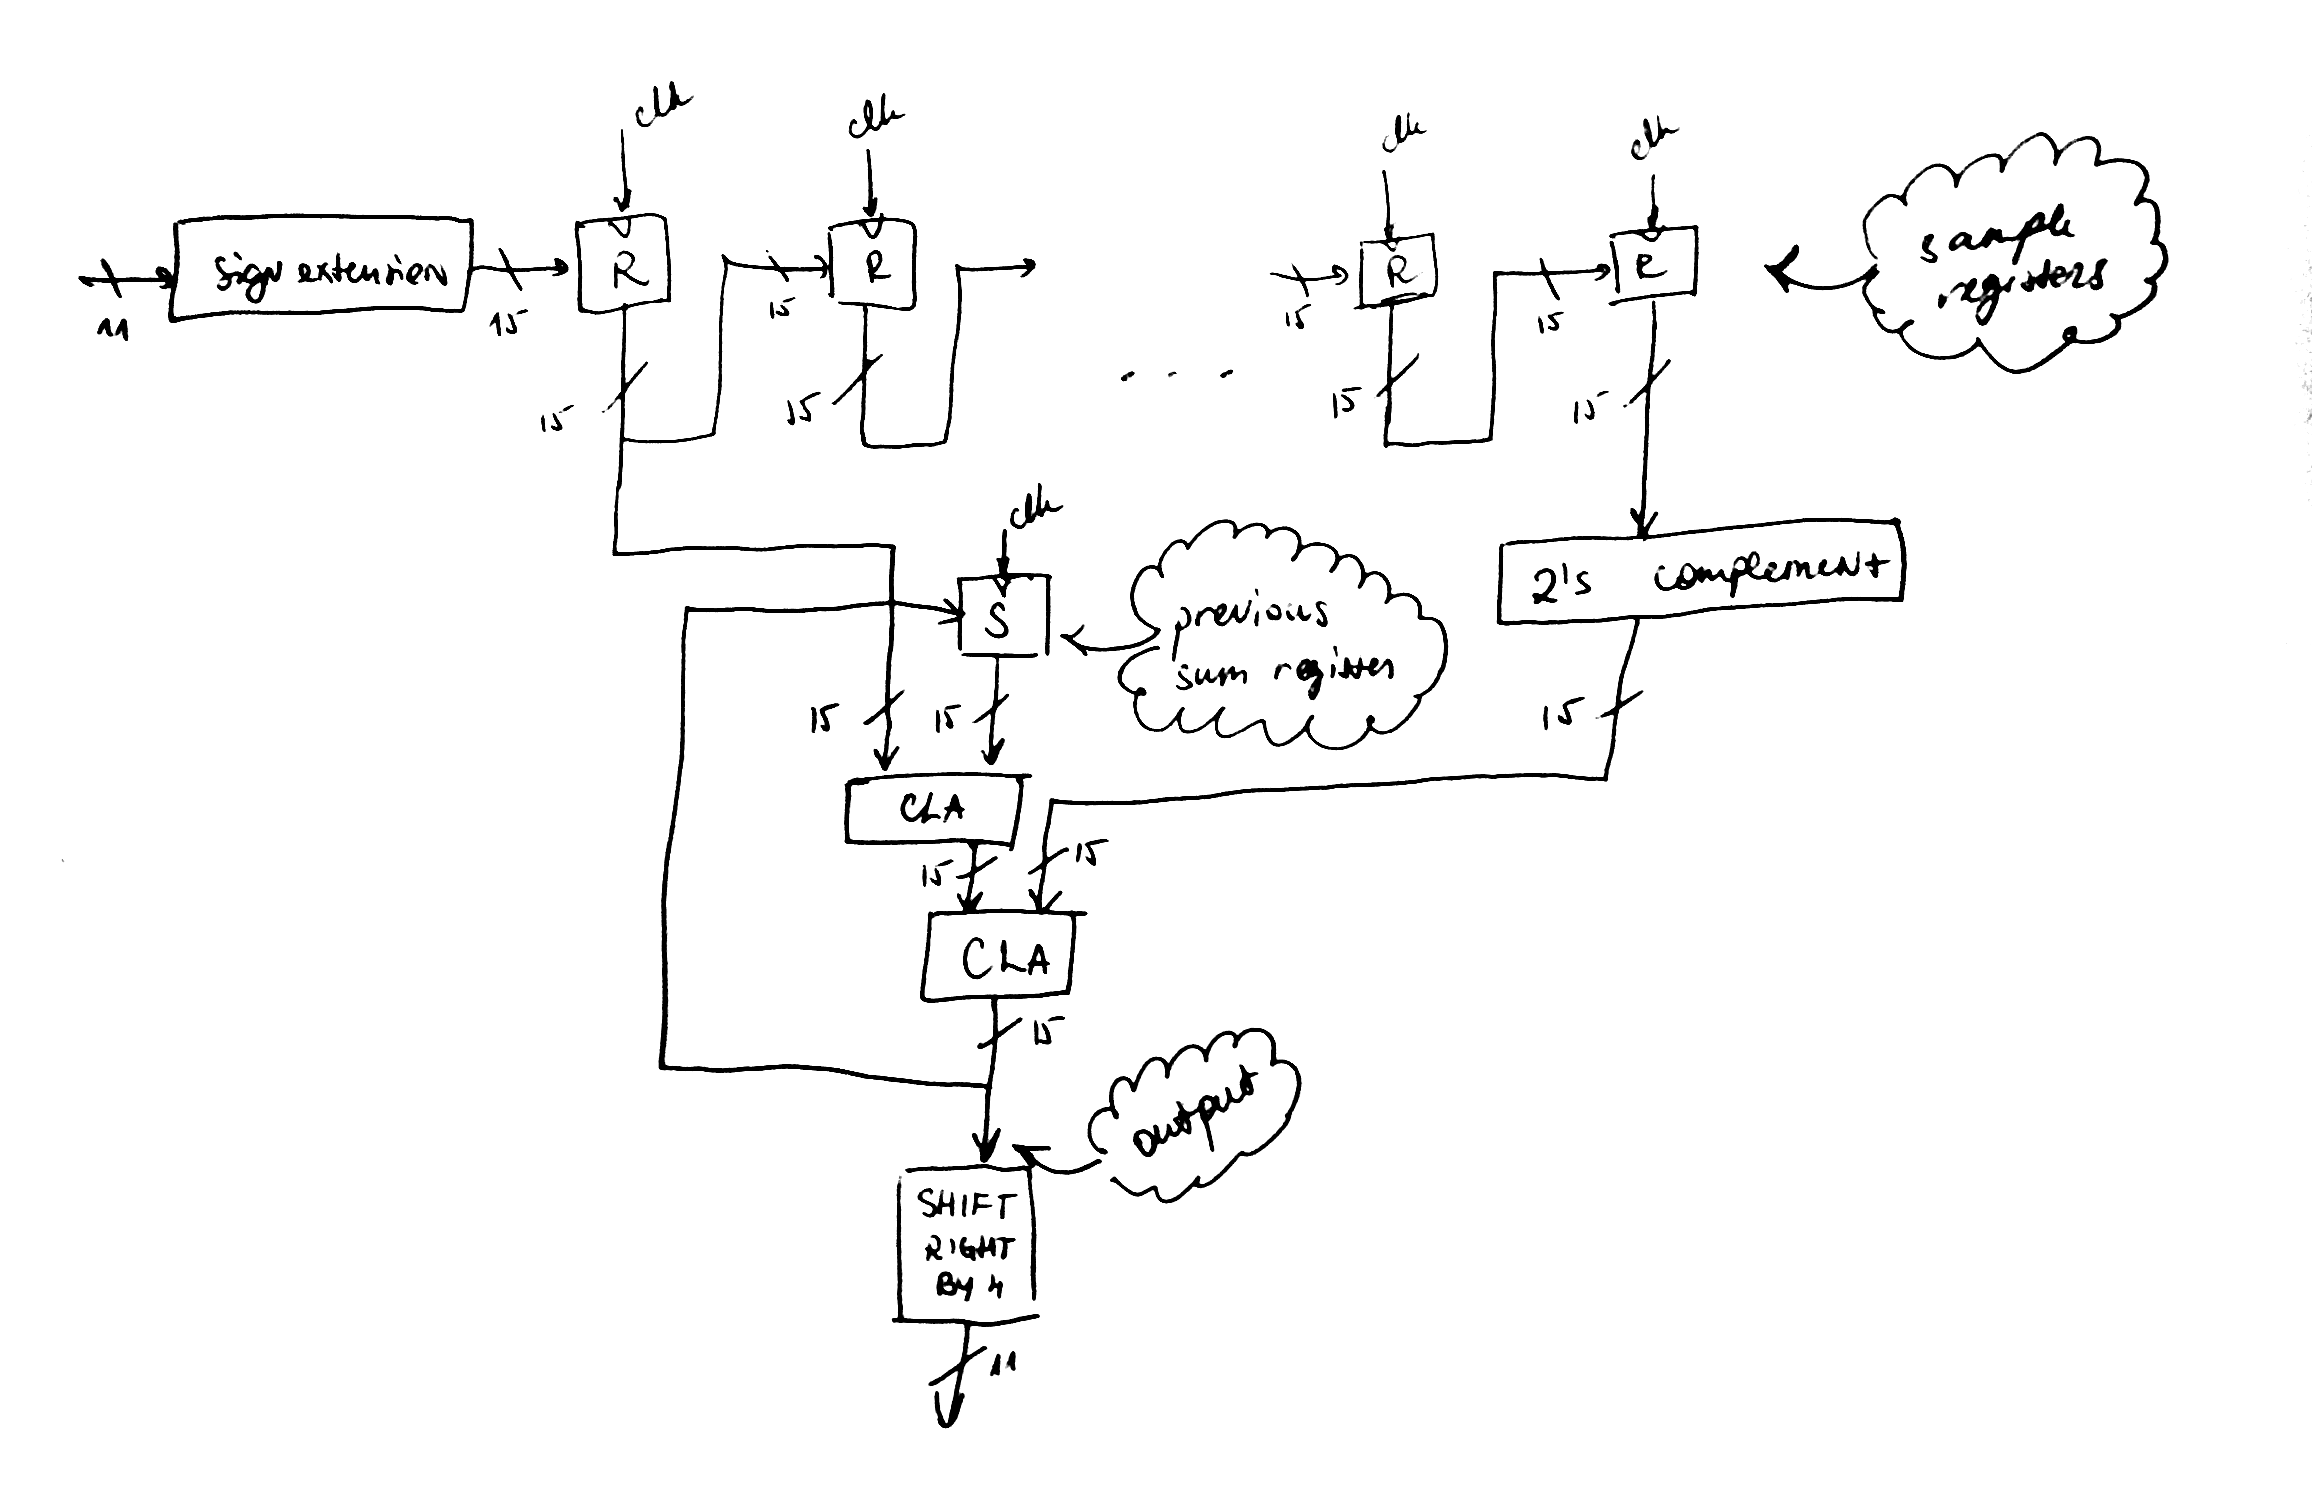 clk
clk
clk
clk
sign extension
R
R
R
R
sample
registers
11
15
15
15
15
15
15
15
15
clk
S
previous
sum register
2's complement
15
15
15
CLA
15
15
CLA
15
output
SHIFT
RIGHT
BY 4
11